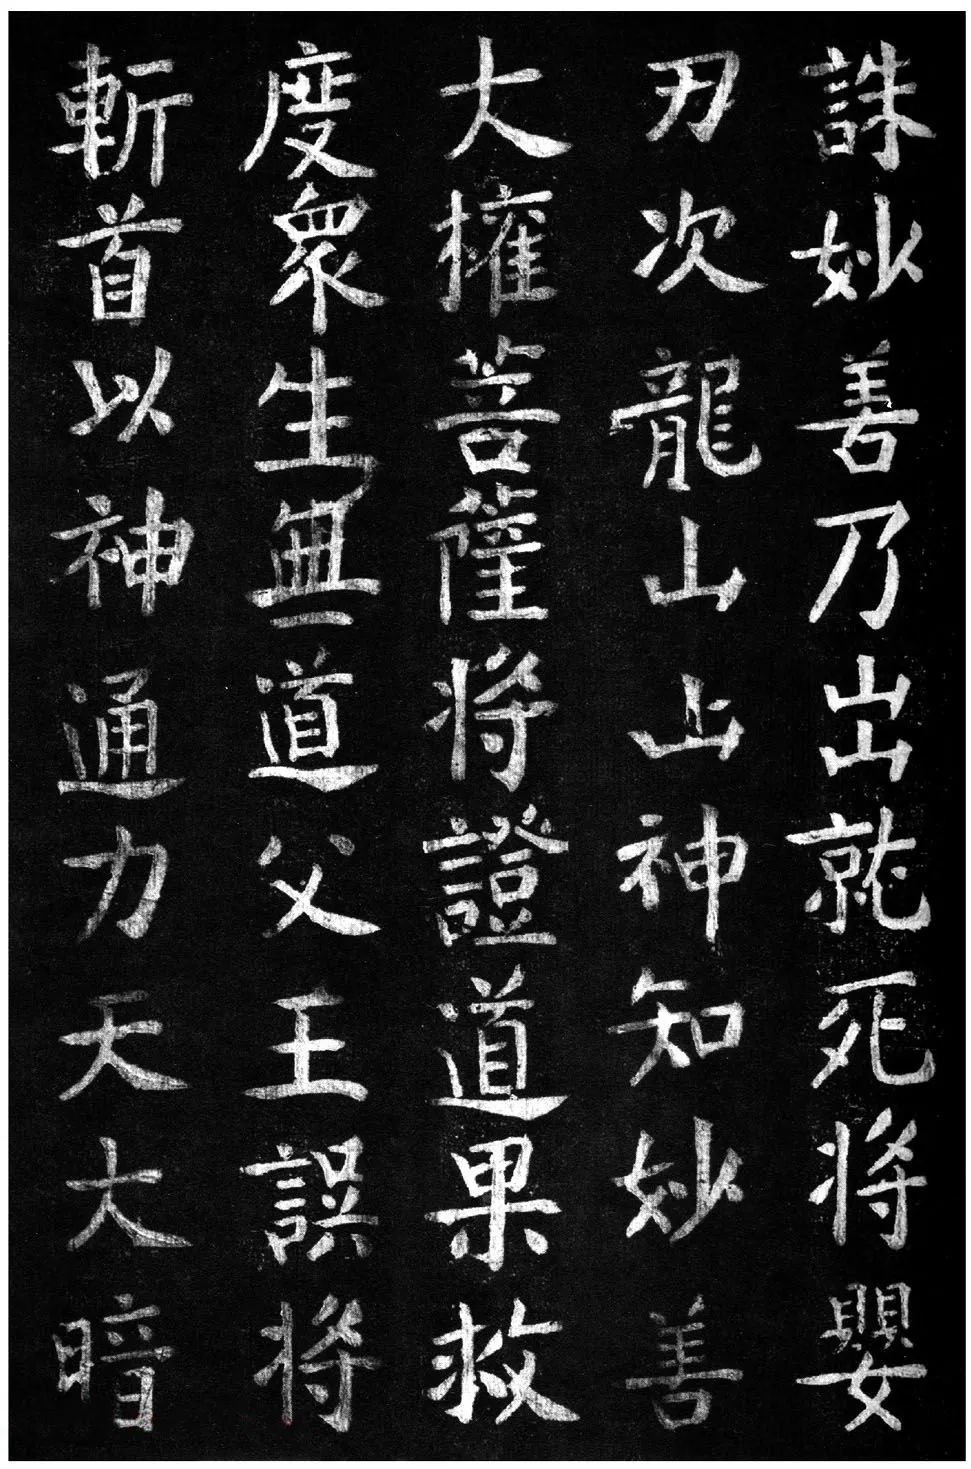 誅妙善乃出就死將嬰
刃次龍山山神知妙善
大權菩薩將證道果救
度眾生無道父王誤將
斬首以神通力天大暗